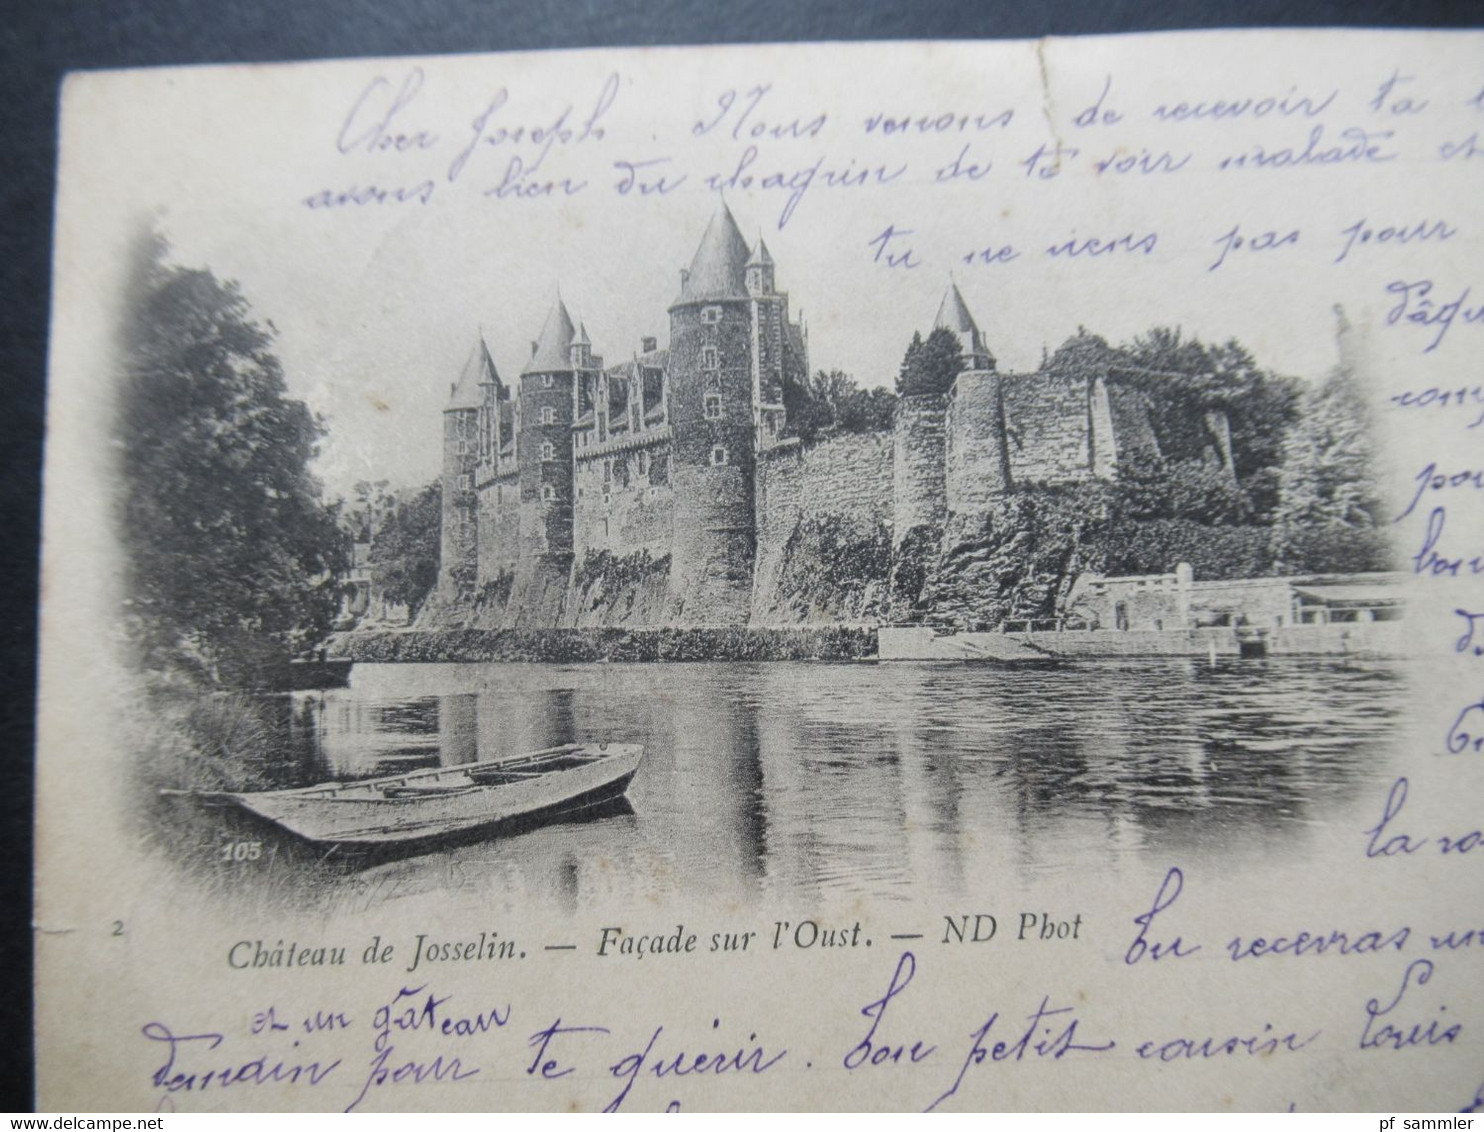 Cher Joseph. Nous venons de recevoir ta
avons bien du chagrin de te voir malade et
tu ne viens pas pour
d'âqu
pou
bon
la ro
105
2
Château de Josselin. — Façade sur l'Oust. — ND Phot
Tu recevras un
et un gâteau
demain pour te guérir. Ton petit cousin Louis
pf_sammler